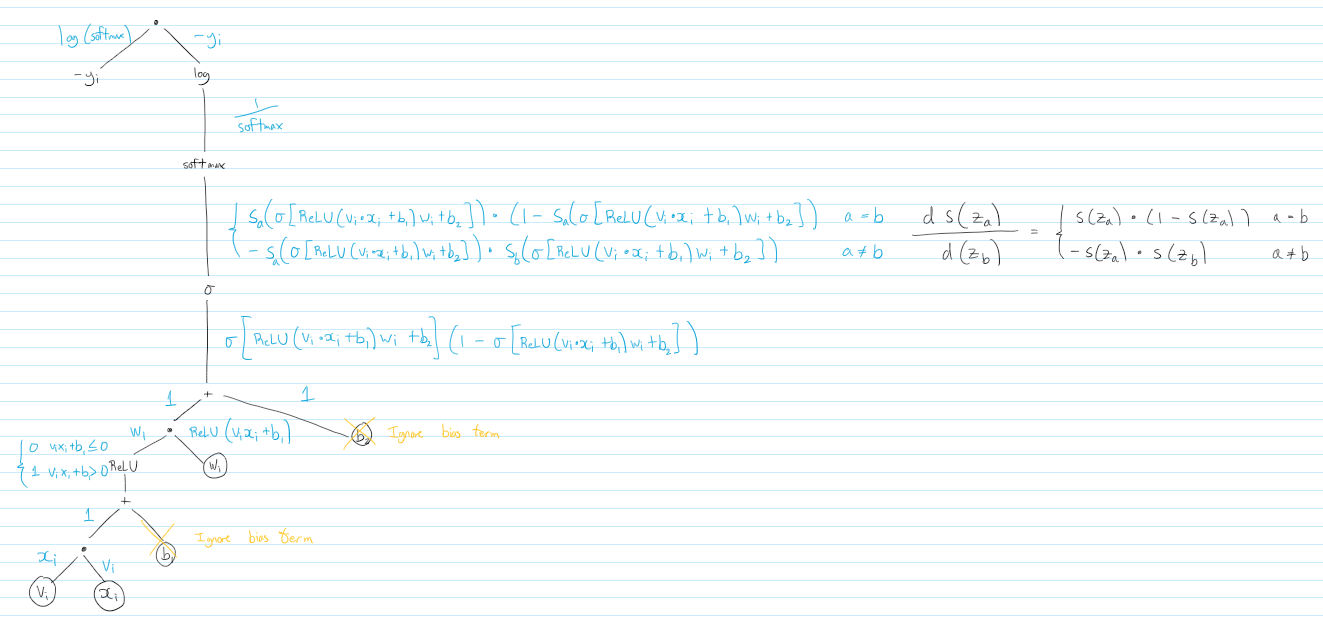 log(softmax) -yᵢ
-yᵢ log
1/softmax
softmax
{ Sₐ(σ[ReLU(vᵢ•xᵢ+b₁)wᵢ+b₂])•(1-Sₐ(σ[ReLU(vᵢ•xᵢ+b₁)wᵢ+b₂])) a=b
-Sₐ(σ[ReLU(vᵢ•xᵢ+b₁)wᵢ+b₂])•S_b(σ[ReLU(vᵢ•xᵢ+b₁)wᵢ+b₂]) a≠b
d S(zₐ)/d(z_b) = { S(zₐ)•(1-S(zₐ)) a=b
-S(zₐ)•S(z_b) a≠b
σ
σ[ReLU(vᵢ•xᵢ+b₁)wᵢ+b₂](1-σ[ReLU(vᵢ•xᵢ+b₁)wᵢ+b₂])
1 + 1
wᵢ • ReLU(vᵢxᵢ+b₁) b₂ Ignore bias term
{ 0 vᵢxᵢ+b₁≤0
1 vᵢxᵢ+b₁>0 ReLU wᵢ
+
1
b₁ Ignore bias term
xᵢ • vᵢ
vᵢ xᵢ